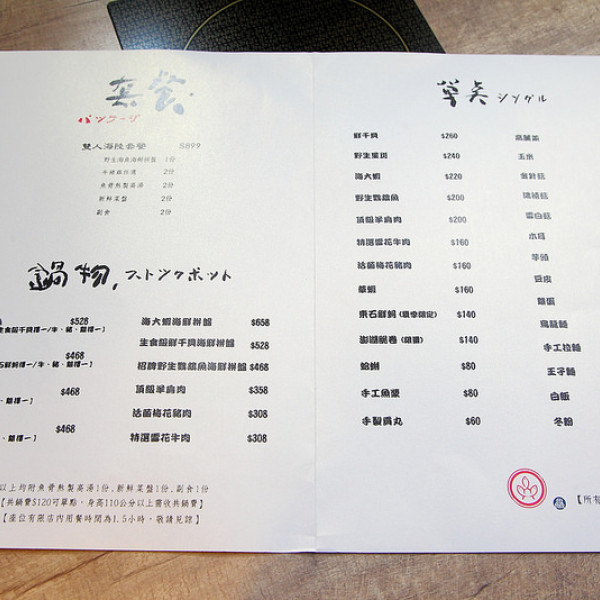 套餐
パツケーヅ
雙人海陸套餐 $899
野生海魚海鮮拼盤 1份
牛豬雞任選 2份
魚骨熬製高湯 2份
新鮮菜盤 2份
副食 2份
鍋物 ストツクポット
$528
生食級干貝擇一/牛、豬、雞擇一】
$468
石鮮蚵擇一/牛、豬、雞擇一】
$468
、雞擇一】
$468
、雞擇一】
海大蝦海鮮拼盤 $658
生食級鮮干貝海鮮拼盤 $528
招牌野生龍膽魚海鮮拼盤 $468
頂級羊肩肉 $358
活菌梅花豬肉 $308
特選雪花牛肉 $308
以上均附魚骨熬製高湯1份,新鮮菜盤1份,副食1份
【共鍋費$120可單點,身高110公分以上需收共鍋費】
【座位有限店內用餐時間為1.5小時,敬請見諒】
單点 シングル
鮮干貝 $260
野生魚斑 $240
海大蝦 $220
野生龍膽魚 $200
頂級羊肩肉 $200
特選雪花牛肉 $160
活菌梅花豬肉 $160
草蝦 $160
東石鮮蚵 (夏季限定) $140
澎湖脆卷 (限量) $140
蛤蜊 $80
手工魚漿 $80
手製貢丸 $60
高麗菜
玉米
金針菇
鴻禧菇
雪白菇
木耳
芋頭
豆皮
雞蛋
烏龍麵
手工拉麵
王子麵
白飯
冬粉
【所有